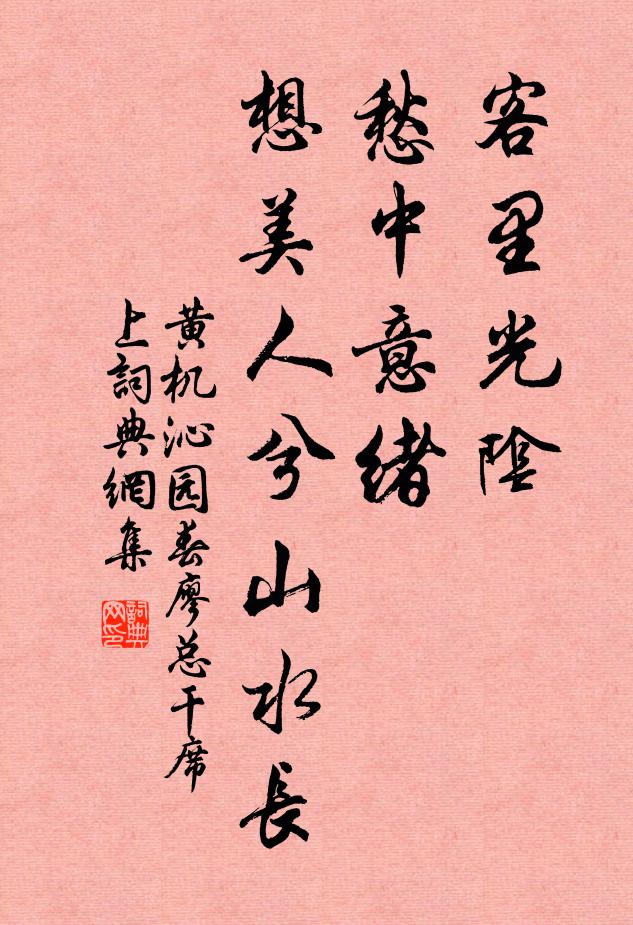 客里光陰
愁中意緒
想美人兮山水長
黄机沁园春廖总干席
上詞典網集
詞典网印